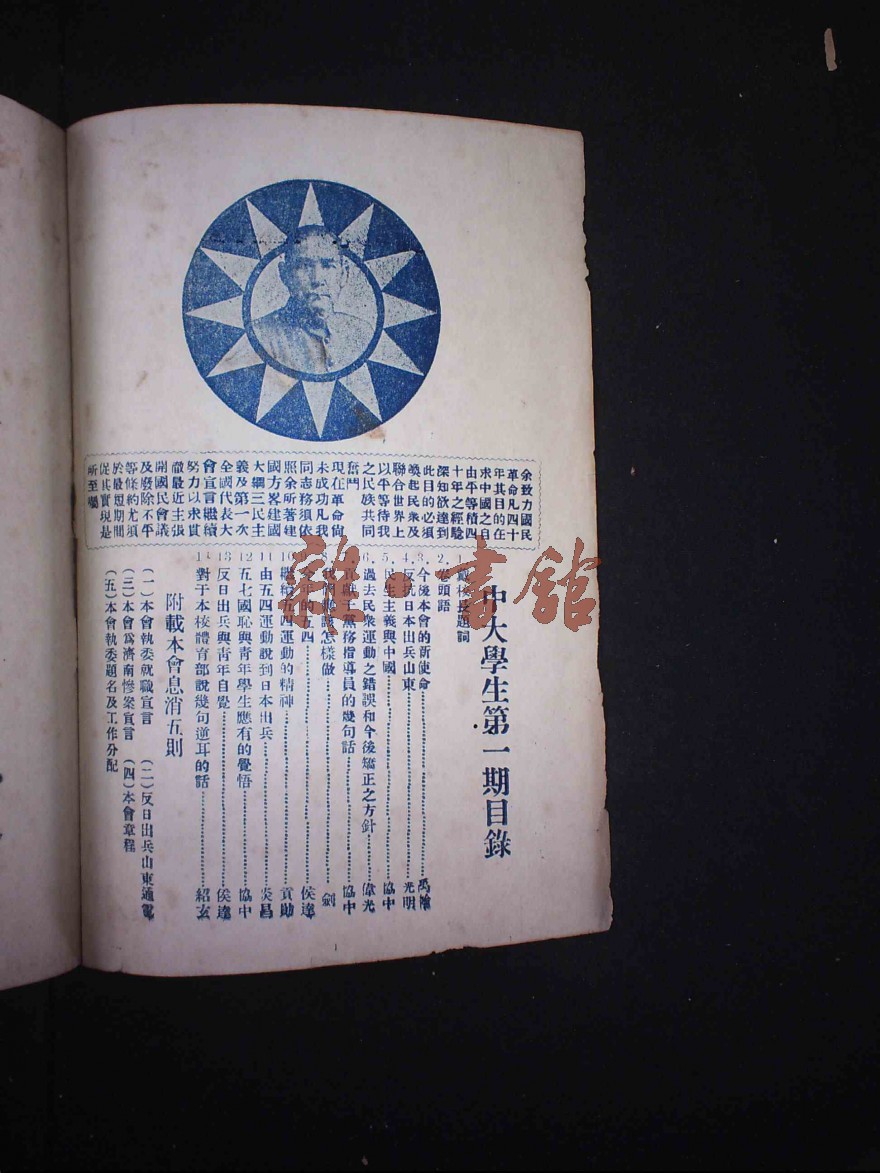 余致力國民
革命凡四十
年其目的在
求中國之自
由平等積四
十年之經驗
深知欲達到
此目的必須
喚起民衆及
聯合世界上
以平等待我
之民族共同
奮鬥
現在革命尚
未成功凡我
同志務須依
照余所著建
國方畧建國
大綱三民主
義及第一次
全國代表大
會宣言繼續
努力以求貫
澈最近主張
開國民會議
及廢除不平
等條約尤須
於最短期間
促其實現是
所至囑
中大學生第一期目錄
1. 校長題詞
2. 頭語
3. 今後本會的新使命
4. 反抗日本出兵山東 光明
5. 民生主義與中國 協中
6. 過去民衆運動之錯誤和今後矯正之方針 偉光
黨務指導員的幾句話 協中
怎樣做 劍
年的五四 侯達
10 五四運動的精神 貢勛
11 由五四運動說到日本出兵 炎昌
12 五七國恥與靑年學生應有的覺悟 協中
13 反日出兵與靑年自覺 侯達
對于本校體育部說幾句逆耳的話 紹玄
附載本會息消五則
(一)本會執委就職宣言 (二)反日出兵山東通電
(三)本會爲濟南慘案宣言 (四)本會章程
(五)本會執委題名及工作分配
雜·書館